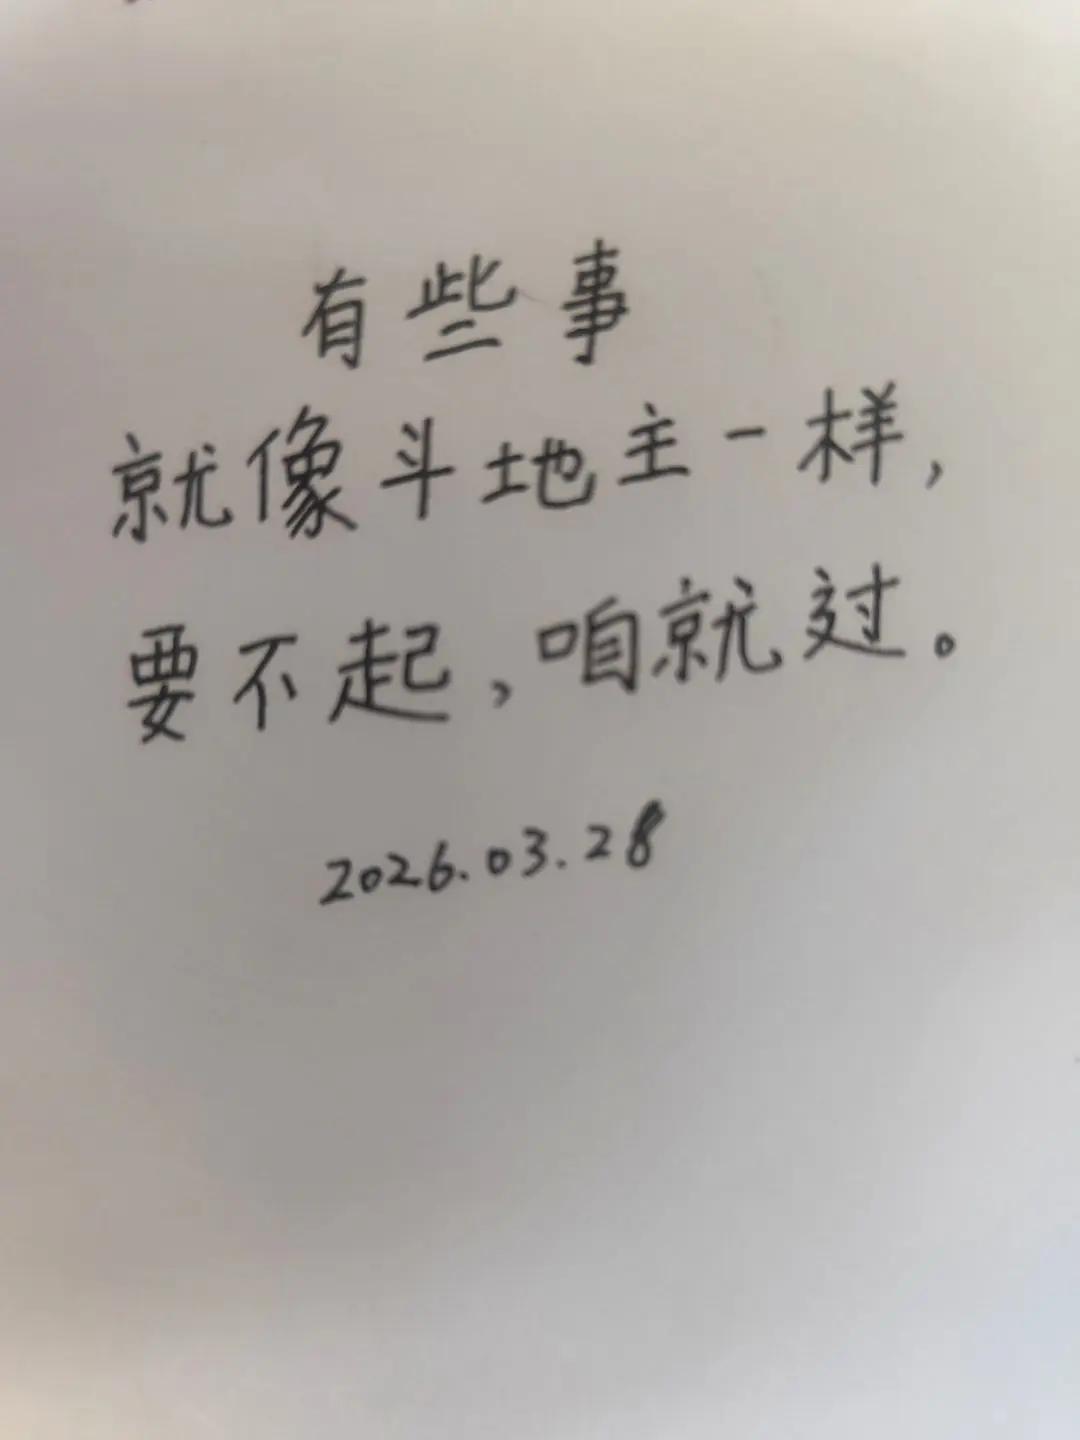 有些事
就像斗地主一样,
要不起,咱就过。
2026.03.28